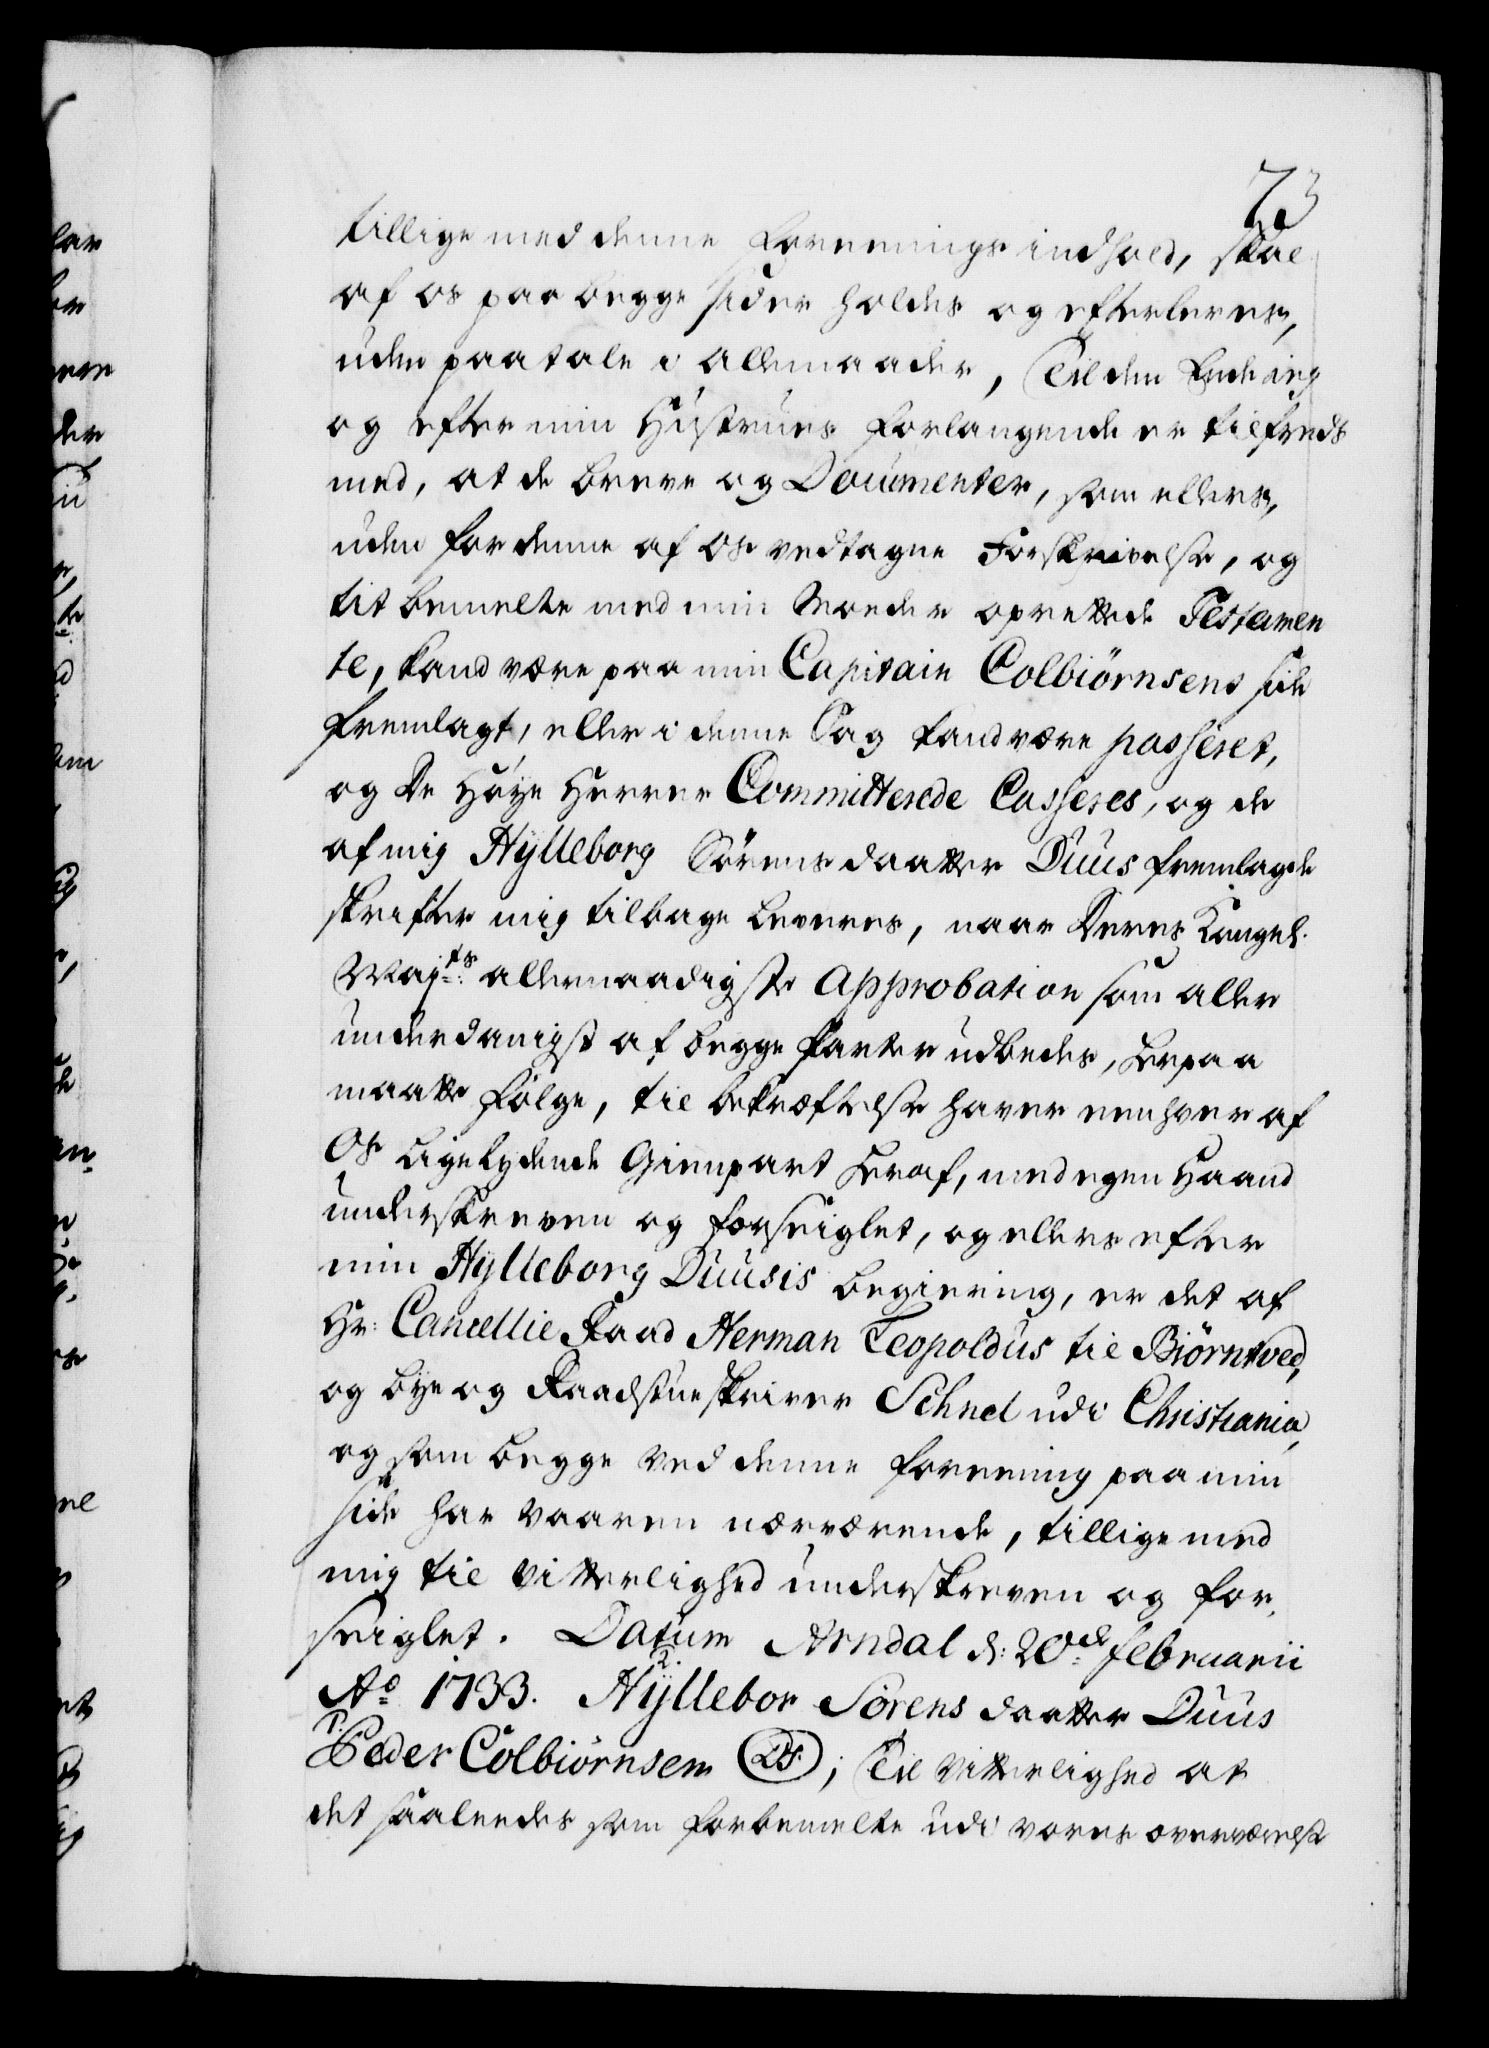 73
tillige med denne Foreenings indhold, skal
af os paa begge sider holdes og efterleves,
uden paatale i allemaader, Til den Ende ieg
og efter min Hustrues Forlangende er tilfreds
med, at de breve og Documenter, som ellers,
uden for denne af os vedtagne Forskrivelse, og
tit bemelte med min Moder oprettede Testamen
te, kand være paa min Capitain Colbiørnsens side
fremlagt, eller i denne Sag kand være passeret,
og De Høye Herrer Committerede Casseres, og de
af mig Hylleborg Sørens daatter Duus fremlagde
skrifter mig tilbage leveres, naar Deres Kongel.
Maj:ts allernaadigste Approbation som aller
underdanigst af begge Parter udbedes, herpaa
maatte følge, til bekræftelse haver eenhver af
Os ligelydende Gienpart heraf, med egen Haand
underskreven og forseiglet, og ellers efter
min Hylleborg Duusis begiering, er det af
Hr: Cancellie Raad Herman Leopoldus til Biørntved,
og bye og Raadstueskriver Schnel udi Christiania,
og som begge ved denne foreening paa min
side har vaaren nærværende, tillige med
mig til Vitterlighed underskreven og for,
seiglet. Datum Arndal d: 20de Februarii
Ao 1733. 2. Hyllebor Sørens daatter Duus
1. Peder Colbiørnsen (LS); Til Vitterlighed at
det saaledes som forbemelte udi vores overværelse